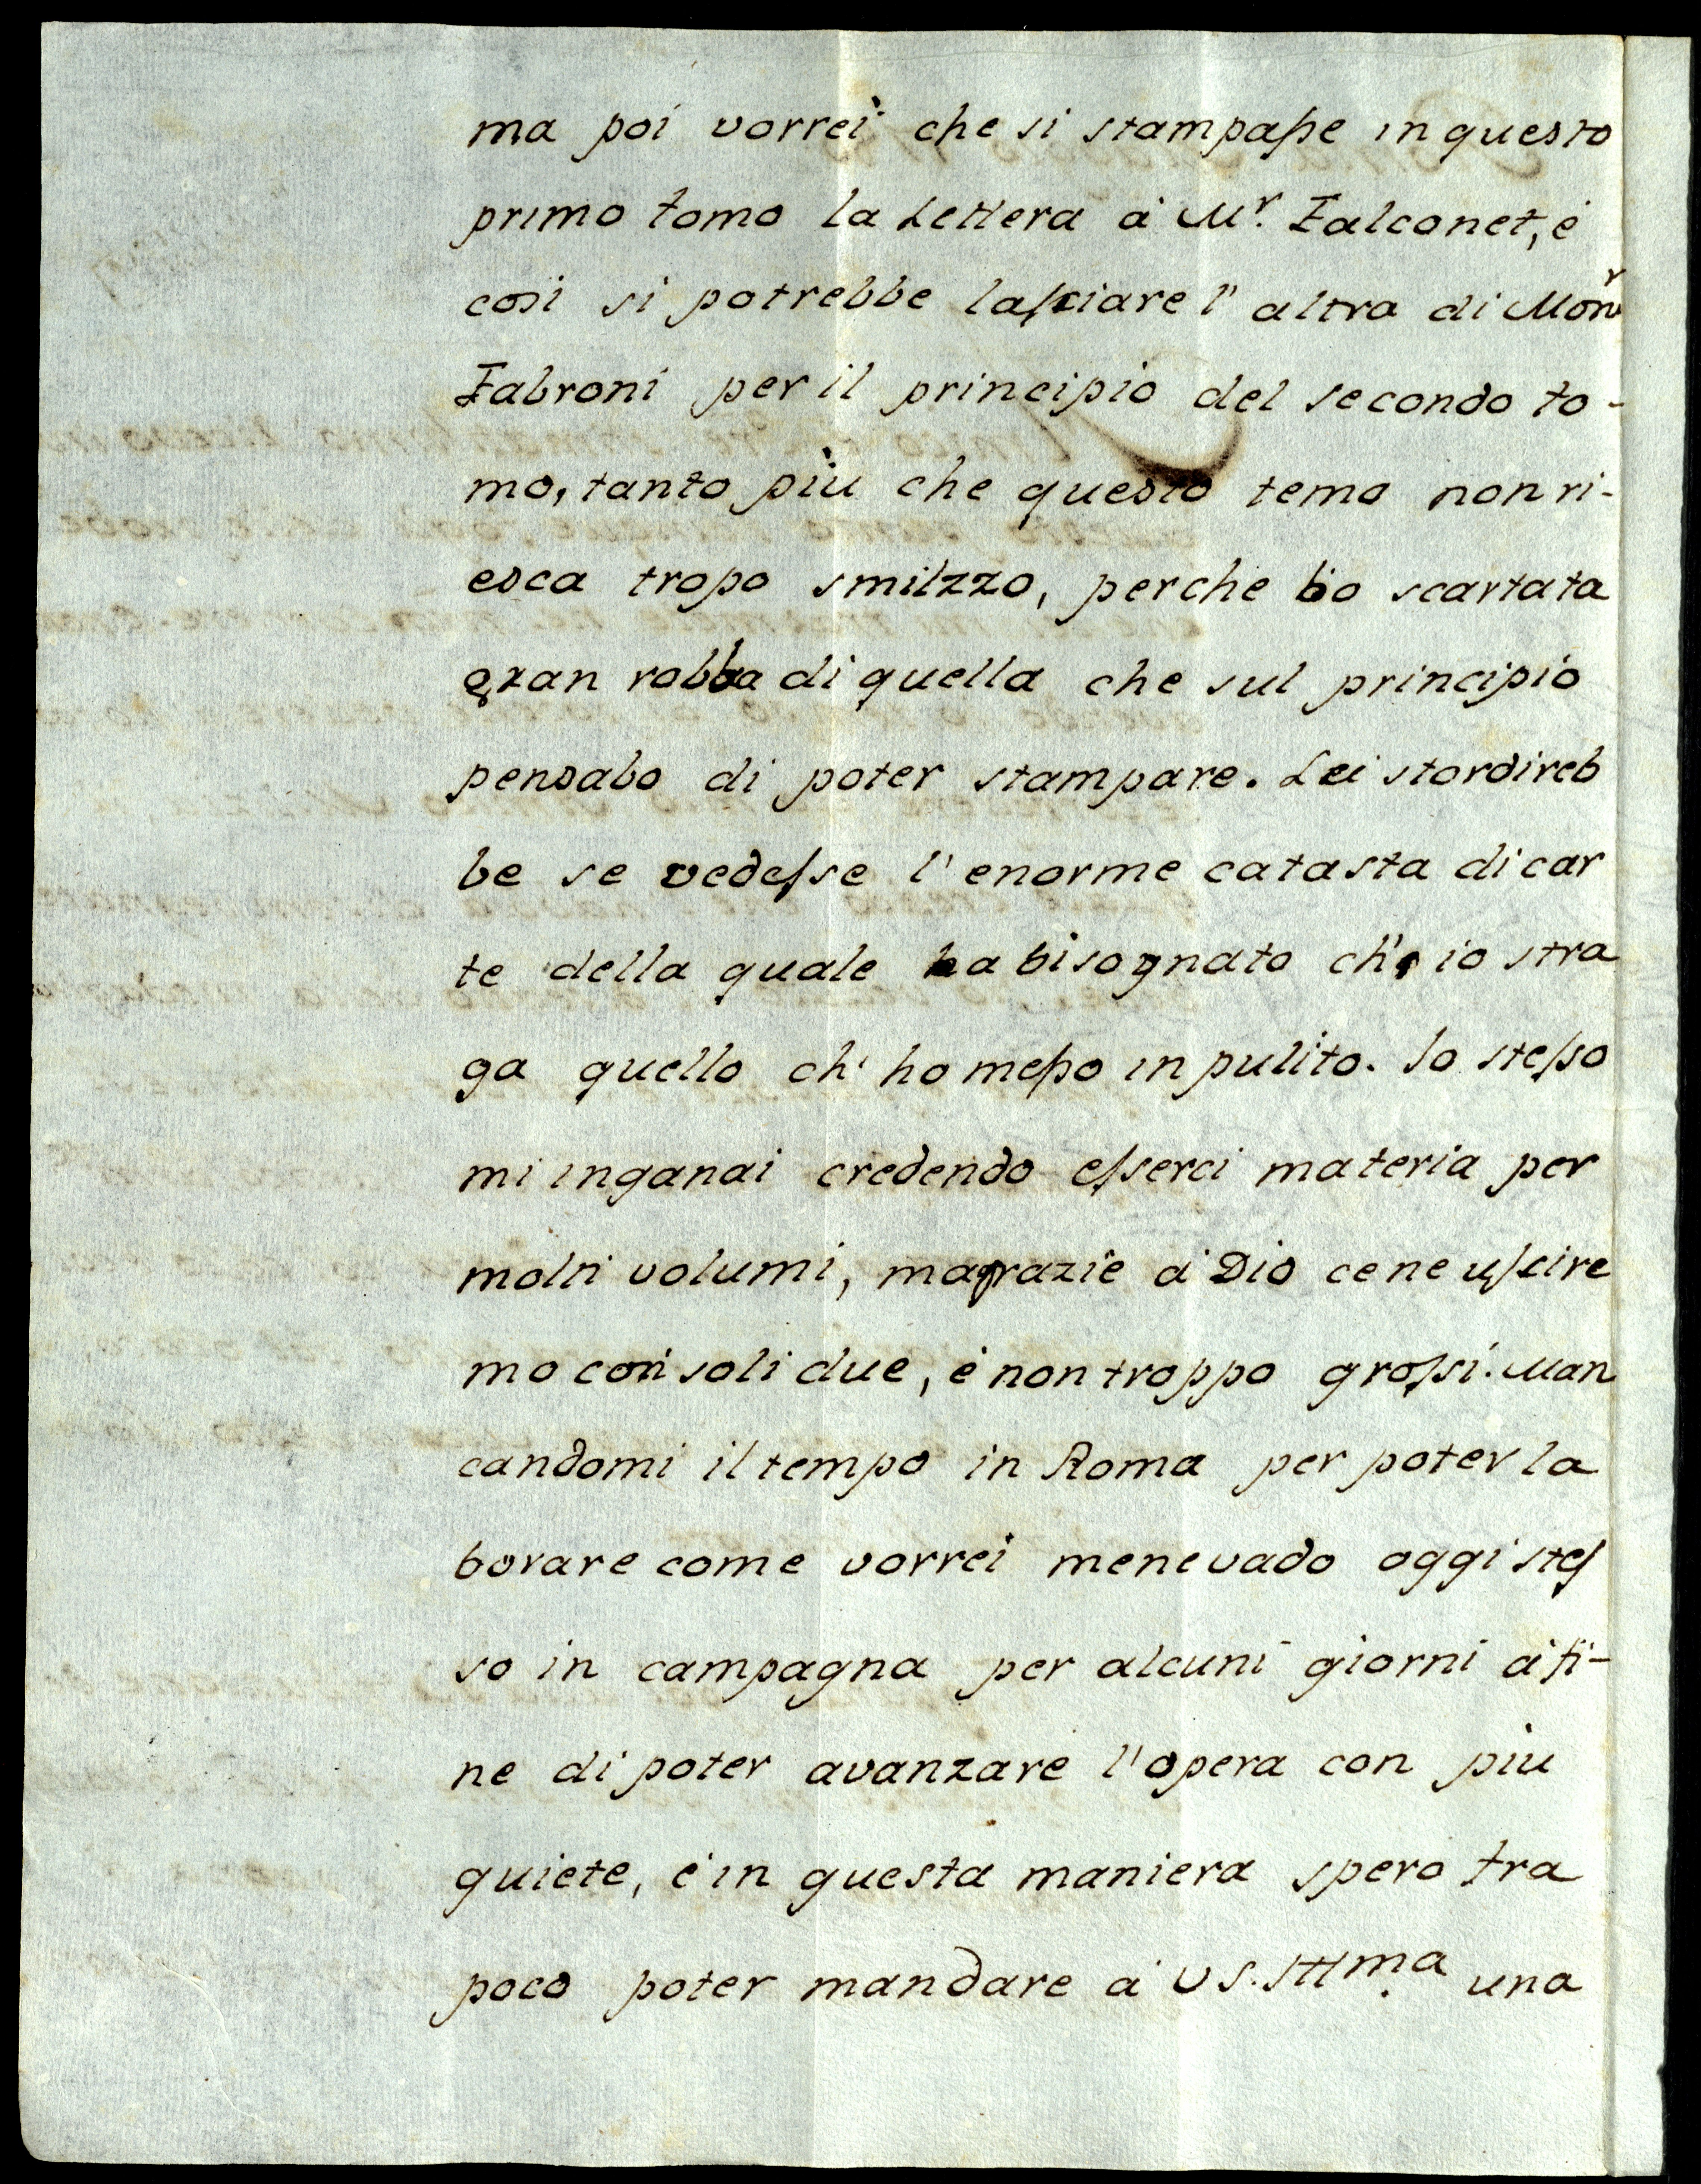 ma poi vorrei che si stampaſse in questo
primo tomo la Lettera à Mr. Falconet, è
così si potrebbe laſciare l'altra di Monr
Fabroni per il principio del secondo to-
mo, tanto più che questo temo non ri-
esca tropo smilzzo, perche ho scartata
gran robba di quella che sul principio
pensabo di poter stampare. Lei stordireb
be se vedeſse l'enorme catasta di car
te della quale ha bisognato ch' io stra
ga quello ch' ho meſso in pulito. Io steſso
mi inganai credendo eſserci materia per
molti volumi, ma grazie à Dio ce ne uſcire
mo con soli due, è non troppo groſsi. Man
candomi il tempo in Roma per poter la
borare come vorrei mene vado oggi steſ
so in campagna per alcuni giorni à fi-
ne di poter avanzare l'opera con più
quiete, è in questa maniera spero tra
poco poter mandare à VS. Illma. una